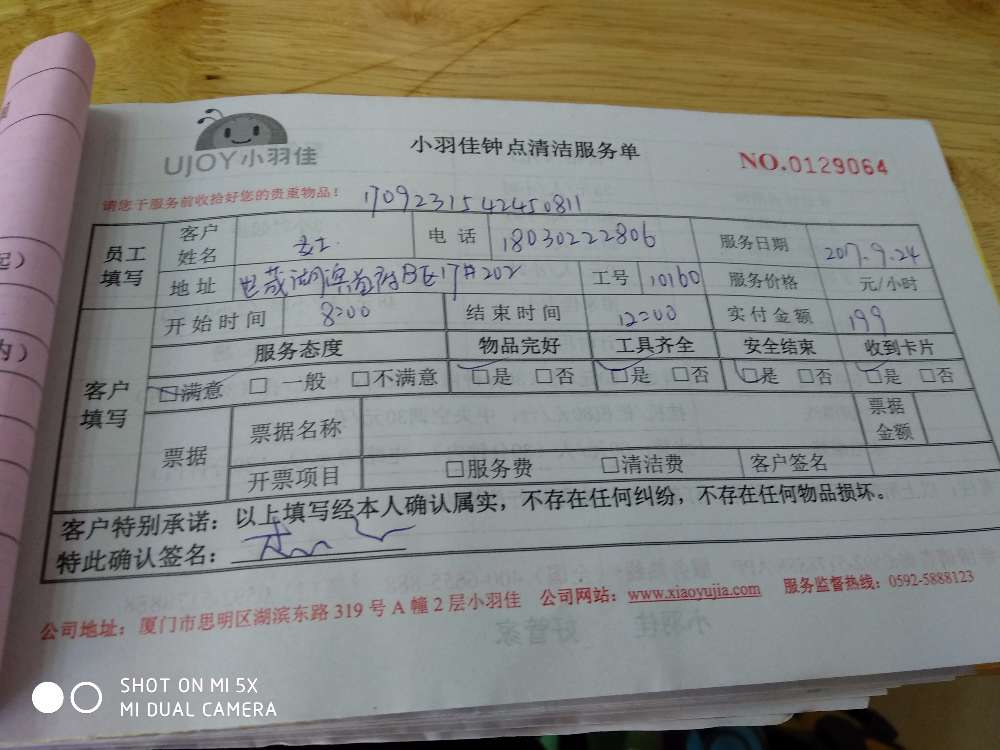 UJOY小羽佳
小羽佳钟点清洁服务单
NO.0129064
请您于服务前收拾好您的贵重物品！
1709231542450811
员工填写 客户姓名 女士 电话 18030222806 服务日期 2017.9.24
地址 世茂湖滨首府B区17#202 工号 10160 服务价格 元/小时
开始时间 8:00 结束时间 12:00 实付金额 199
客户填写 服务态度 物品完好 工具齐全 安全结束 收到卡片
□满意 □一般 □不满意 □是 □否 □是 □否 □是 □否 □是 □否
票据 票据名称 票据金额
开票项目 □服务费 □清洁费 客户签名
客户特别承诺：以上填写经本人确认属实，不存在任何纠纷，不存在任何物品损坏。
特此确认签名：
公司地址：厦门市思明区湖滨东路319号A幢2层小羽佳 公司网站：www.xiaoyujia.com 服务监督热线：0592-5888123
SHOT ON MI 5X
MI DUAL CAMERA